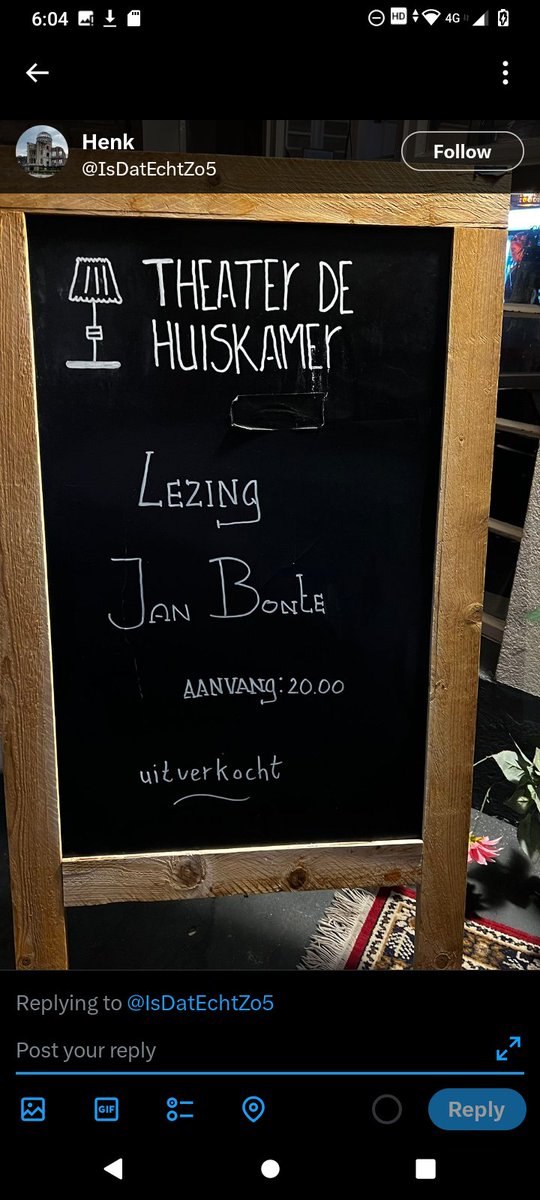 6:04
HD
4G
Henk
@IsDatEchtZo5
Follow
THEATER DE
HUISKAMER
LEZING
JAN BONTE
AANVANG: 20.00
uitverkocht
Replying to @IsDatEchtZo5
Post your reply
GIF
Reply